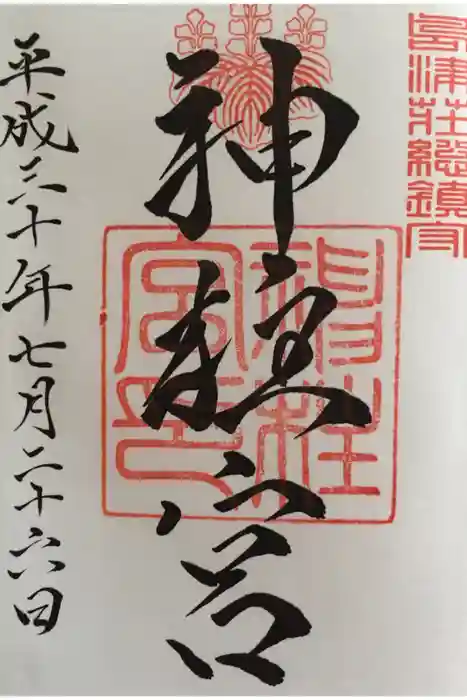 島津荘総鎮守
神柱宮
神柱宮印
平成三十年七月二十六日